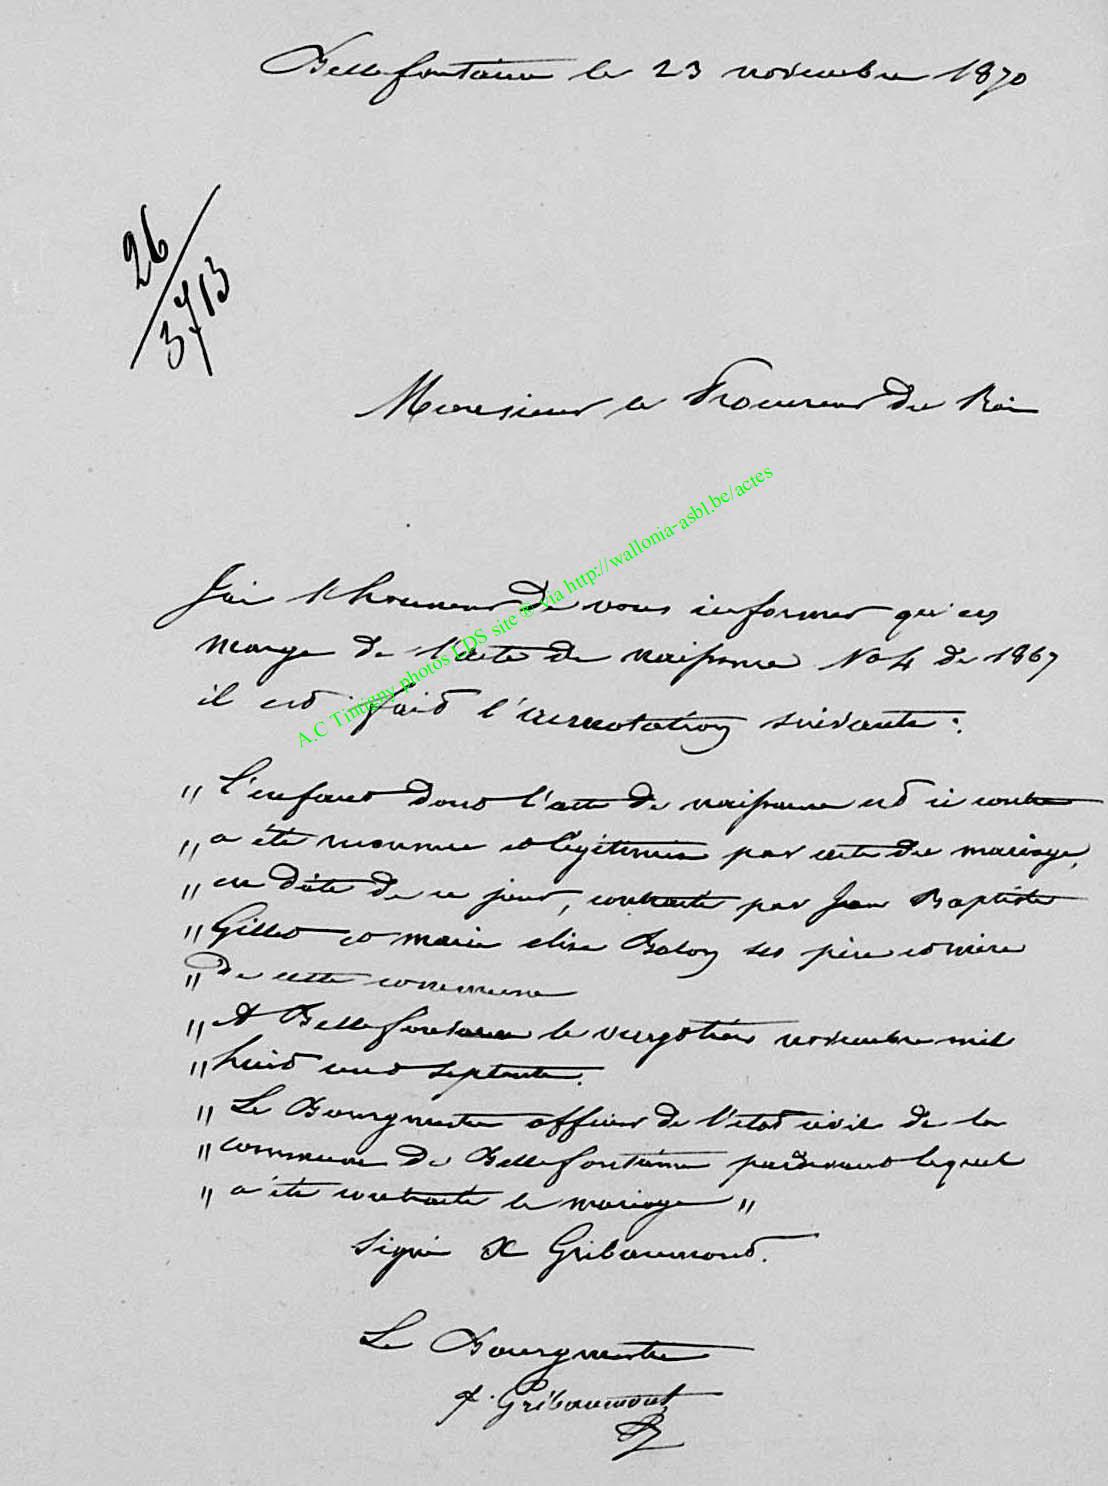 Bellefontaine le 23 novembre 1870
26/3713
Monsieur le Procureur du Roi
J'ai l'honneur de vous informer qu'en
marge de l'acte de naissance No 4 de 1867
il est fait l'annotation suivante :
A.C Tintigny photos LDS site ® via http://wallonia-asbl.be/actes
" L'enfant dont l'acte de naissance est ci contre
" a été reconnu et légitimé par acte de mariage,
" en date de ce jour, contracté par Jean Baptiste
" Gillet et marie elise Balon ses père et mère
" de cette commune
" A Bellefontaine le vingt trois novembre mil
" huit cent septante.
" Le Bourgmestre officier de l'etat civil de la
" commune de Bellefontaine pardevant lequel
" a été contracté le mariage "
signé Gribaumont.
Le Bourgmestre
Gribaumont